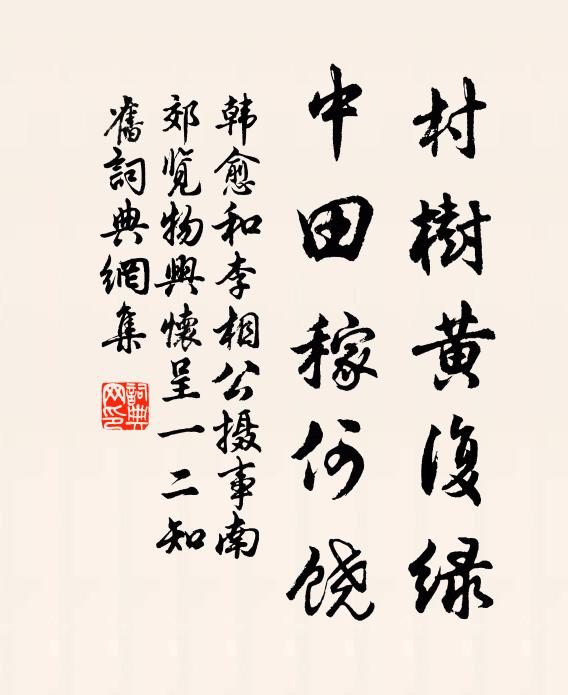 村樹黄復緑
中田稼何饶
韩愈和李相公摄事南
郊览物興懷呈一二知
舊詞典網集
詞典
网印